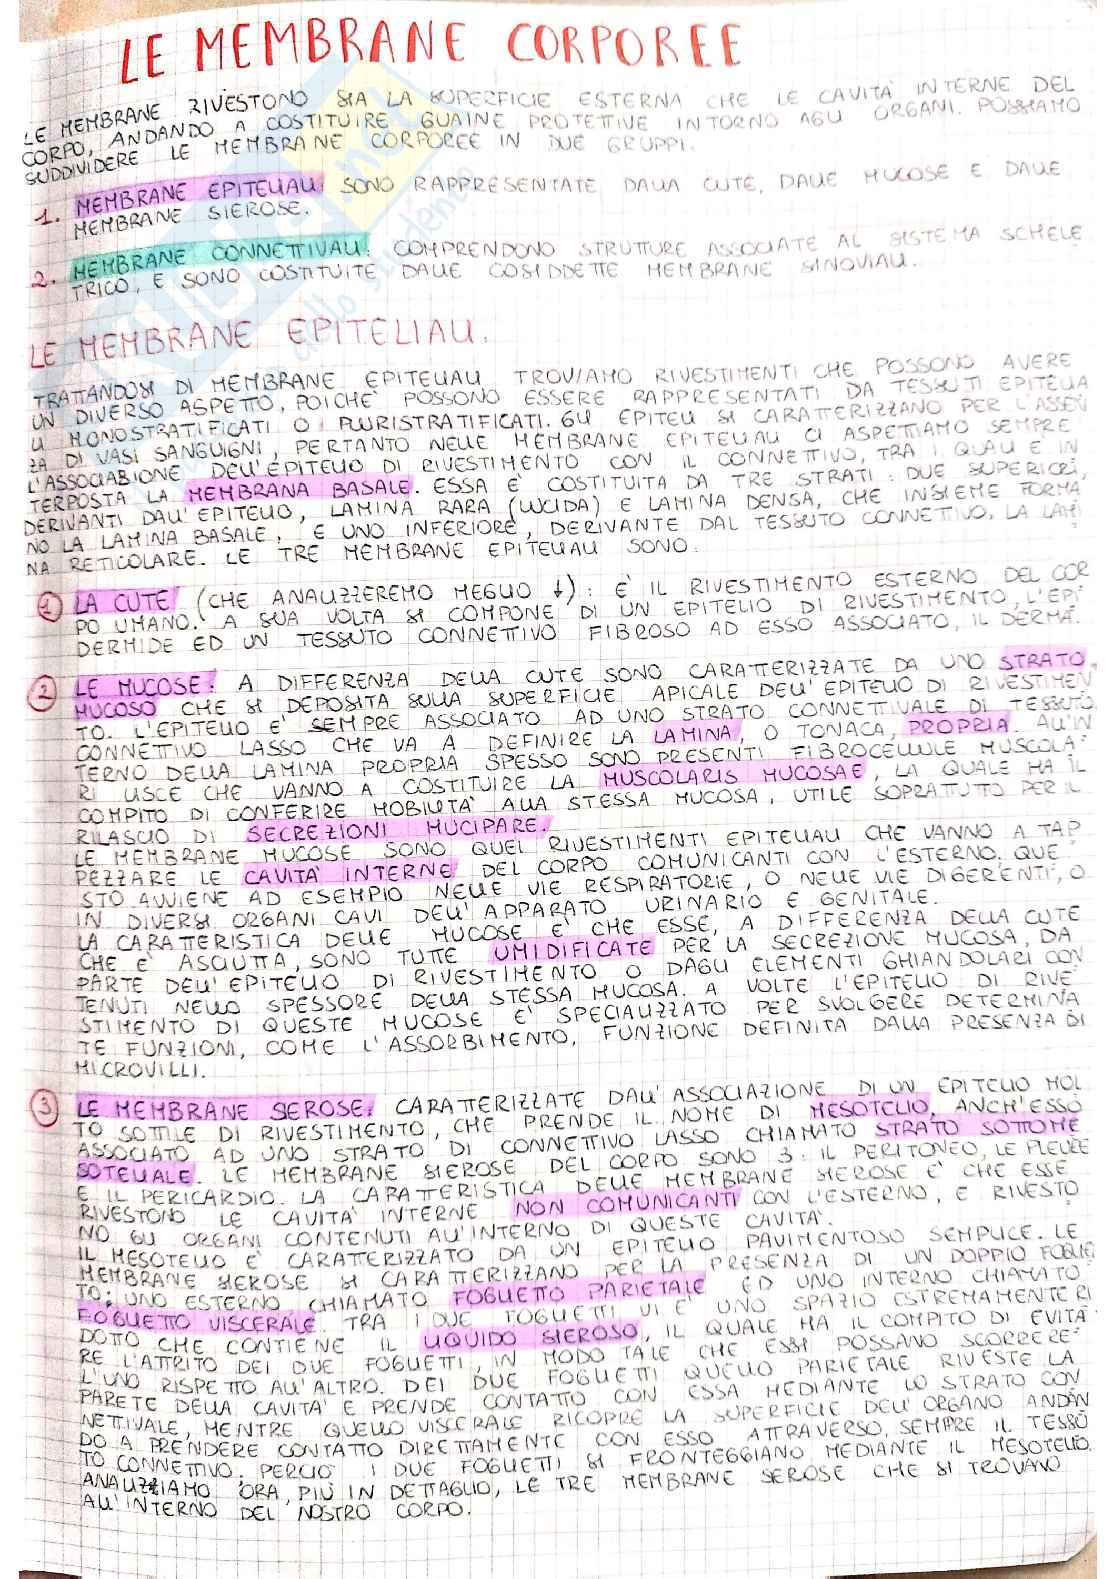 LE MEMBRANE CORPOREE
LE MEMBRANE RIVESTONO SIA LA SUPERFICIE ESTERNA CHE LE CAVITÀ INTERNE DEL
CORPO, ANDANDO A COSTITUIRE GUAINE PROTETTIVE INTORNO AGLI ORGANI. POSSIAMO
SUDDIVIDERE LE MEMBRANE CORPOREE IN DUE GRUPPI.
1. MEMBRANE EPITELIALI: SONO RAPPRESENTATE DALLA CUTE, DALLE MUCOSE E DALLE
MEMBRANE SIEROSE.
2. MEMBRANE CONNETTIVALI: COMPRENDONO STRUTTURE ASSOCIATE AL SISTEMA SCHELE
TRICO, E SONO COSTITUITE DALLE COSIDDETTE MEMBRANE SINOVIALI.
LE MEMBRANE EPITELIALI.
TRATTANDOSI DI MEMBRANE EPITELIALI TROVIAMO RIVESTIMENTI CHE POSSONO AVERE
UN DIVERSO ASPETTO, POICHÈ POSSONO ESSERE RAPPRESENTATI DA TESSUTI EPITELIA
LI MONOSTRATIFICATI O PLURISTRATIFICATI. GLI EPITELI SI CARATTERIZZANO PER L'ASSEN
ZA DI VASI SANGUIGNI, PERTANTO NELLE MEMBRANE EPITELIALI CI ASPETTIAMO SEMPRE
L'ASSOCIAZIONE DELL'EPITELIO DI RIVESTIMENTO CON IL CONNETTIVO, TRA I QUALI È IN
TERPOSTA LA MEMBRANA BASALE. ESSA È COSTITUITA DA TRE STRATI: DUE SUPERIORI,
DERIVANTI DALL'EPITELIO, LAMINA RARA (LUCIDA) E LAMINA DENSA, CHE INSIEME FORMA
NO LA LAMINA BASALE, E UNO INFERIORE, DERIVANTE DAL TESSUTO CONNETTIVO, LA LAMI
NA RETICOLARE. LE TRE MEMBRANE EPITELIALI SONO:
1 LA CUTE (CHE ANALIZZEREMO MEGLIO ↓): È IL RIVESTIMENTO ESTERNO DEL COR
PO UMANO. A SUA VOLTA SI COMPONE DI UN EPITELIO DI RIVESTIMENTO, L'EPI
DERMIDE ED UN TESSUTO CONNETTIVO FIBROSO AD ESSO ASSOCIATO, IL DERMA.
2 LE MUCOSE: A DIFFERENZA DELLA CUTE SONO CARATTERIZZATE DA UNO STRATO
MUCOSO CHE SI DEPOSITA SULLA SUPERFICIE APICALE DELL'EPITELIO DI RIVESTIMEN
TO. L'EPITELIO È SEMPRE ASSOCIATO AD UNO STRATO CONNETTIVALE DI TESSUTO
CONNETTIVO LASSO CHE VA A DEFINIRE LA LAMINA, O TONACA, PROPRIA. ALL'IN
TERNO DELLA LAMINA PROPRIA SPESSO SONO PRESENTI FIBROCELLULE MUSCOLA
RI LISCE CHE VANNO A COSTITUIRE LA MUSCOLARIS MUCOSAE, LA QUALE HA IL
COMPITO DI CONFERIRE MOBILITÀ ALLA STESSA MUCOSA, UTILE SOPRATTUTTO PER IL
RILASCIO DI SECREZIONI MUCIPARE.
LE MEMBRANE MUCOSE SONO QUEI RIVESTIMENTI EPITELIALI CHE VANNO A TAP
PEZZARE LE CAVITÀ INTERNE DEL CORPO COMUNICANTI CON L'ESTERNO. QUE
STO AVVIENE AD ESEMPIO NELLE VIE RESPIRATORIE, O NELLE VIE DIGERENTI, O
IN DIVERSI ORGANI CAVI DELL'APPARATO URINARIO E GENITALE.
LA CARATTERISTICA DELLE MUCOSE È CHE ESSE, A DIFFERENZA DELLA CUTE
CHE È ASCIUTTA, SONO TUTTE UMIDIFICATE PER LA SECREZIONE MUCOSA, DA
PARTE DELL'EPITELIO DI RIVESTIMENTO O DAGLI ELEMENTI GHIANDOLARI CON
TENUTI NELLO SPESSORE DELLA STESSA MUCOSA. A VOLTE L'EPITELIO DI RIVE
STIMENTO DI QUESTE MUCOSE È SPECIALIZZATO PER SVOLGERE DETERMINA
TE FUNZIONI, COME L'ASSORBIMENTO, FUNZIONE DEFINITA DALLA PRESENZA DI
MICROVILLI.
3 LE MEMBRANE SEROSE: CARATTERIZZATE DALL'ASSOCIAZIONE DI UN EPITELIO MOL
TO SOTTILE DI RIVESTIMENTO, CHE PRENDE IL NOME DI MESOTELIO, ANCH'ESSO
ASSOCIATO AD UNO STRATO DI CONNETTIVO LASSO CHIAMATO STRATO SOTTOME
SOTELIALE. LE MEMBRANE SIEROSE DEL CORPO SONO 3: IL PERITONEO, LE PLEURE
E IL PERICARDIO. LA CARATTERISTICA DELLE MEMBRANE SIEROSE È CHE ESSE
RIVESTONO LE CAVITÀ INTERNE NON COMUNICANTI CON L'ESTERNO, E RIVESTO
NO GLI ORGANI CONTENUTI ALL'INTERNO DI QUESTE CAVITÀ.
IL MESOTELIO È CARATTERIZZATO DA UN EPITELIO PAVIMENTOSO SEMPLICE. LE
MEMBRANE SIEROSE SI CARATTERIZZANO PER LA PRESENZA DI UN DOPPIO FOGLIE
TO: UNO ESTERNO CHIAMATO FOGLIETTO PARIETALE ED UNO INTERNO CHIAMATO
FOGLIETTO VISCERALE. TRA I DUE FOGLIETTI VI È UNO SPAZIO ESTREMAMENTE RI
DOTTO CHE CONTIENE IL LIQUIDO SIEROSO, IL QUALE HA IL COMPITO DI EVITA
RE L'ATTRITO DEI DUE FOGLIETTI, IN MODO TALE CHE ESSI POSSANO SCORRERE
L'UNO RISPETTO ALL'ALTRO. DEI DUE FOGLIETTI QUELLO PARIETALE RIVESTE LA
PARETE DELLA CAVITÀ E PRENDE CONTATTO CON ESSA MEDIANTE LO STRATO CON
NETTIVALE, MENTRE QUELLO VISCERALE RICOPRE LA SUPERFICIE DELL'ORGANO ANDAN
DO A PRENDERE CONTATTO DIRETTAMENTE CON ESSO ATTRAVERSO, SEMPRE IL TESSU
TO CONNETTIVO; PERCIÒ I DUE FOGLIETTI SI FRONTEGGIANO MEDIANTE IL MESOTELIO.
ANALIZZIAMO ORA, PIÙ IN DETTAGLIO, LE TRE MEMBRANE SEROSE CHE SI TROVANO
ALL'INTERNO DEL NOSTRO CORPO.